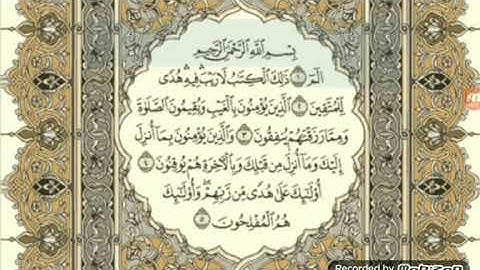 بِسْمِ ٱللَّهِ ٱلرَّحْمَٰنِ ٱلرَّحِيمِ
الٓمٓ ١ ذَٰلِكَ ٱلْكِتَٰبُ لَا رَيْبَ ۛ فِيهِ ۛ هُدًى
لِّلْمُتَّقِينَ ٢ ٱلَّذِينَ يُؤْمِنُونَ بِٱلْغَيْبِ وَيُقِيمُونَ ٱلصَّلَوٰةَ
وَمِمَّا رَزَقْنَٰهُمْ يُنفِقُونَ ٣ وَٱلَّذِينَ يُؤْمِنُونَ بِمَآ أُنزِلَ
إِلَيْكَ وَمَآ أُنزِلَ مِن قَبْلِكَ وَبِٱلْءَاخِرَةِ هُمْ يُوقِنُونَ ٤
أُو۟لَٰٓئِكَ عَلَىٰ هُدًى مِّن رَّبِّهِمْ ۖ وَأُو۟لَٰٓئِكَ
هُمُ ٱلْمُفْلِحُونَ ٥
Recorded by MOBIZEN